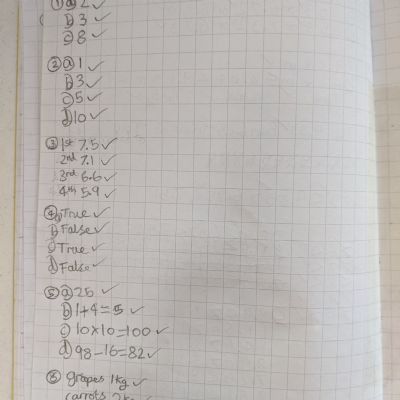 ① ⓐ 2 ✓
ⓑ 3 ✓
ⓒ 8 ✓
② ⓐ 1 ✓
ⓑ 3 ✓
ⓒ 5 ✓
ⓓ 10 ✓
③ 1st 7.5 ✓
2nd 7.1 ✓
3rd 6.6 ✓
4th 5.9 ✓
④ ⓐ True ✓
ⓑ False ✓
ⓒ True ✓
ⓓ False ✓
⑤ ⓐ 25 ✓
ⓑ 1+4=5 ✓
ⓒ 10×10=100 ✓
ⓓ 98-16=82 ✓
⑥ grapes 1kg ✓
carrots 2kg